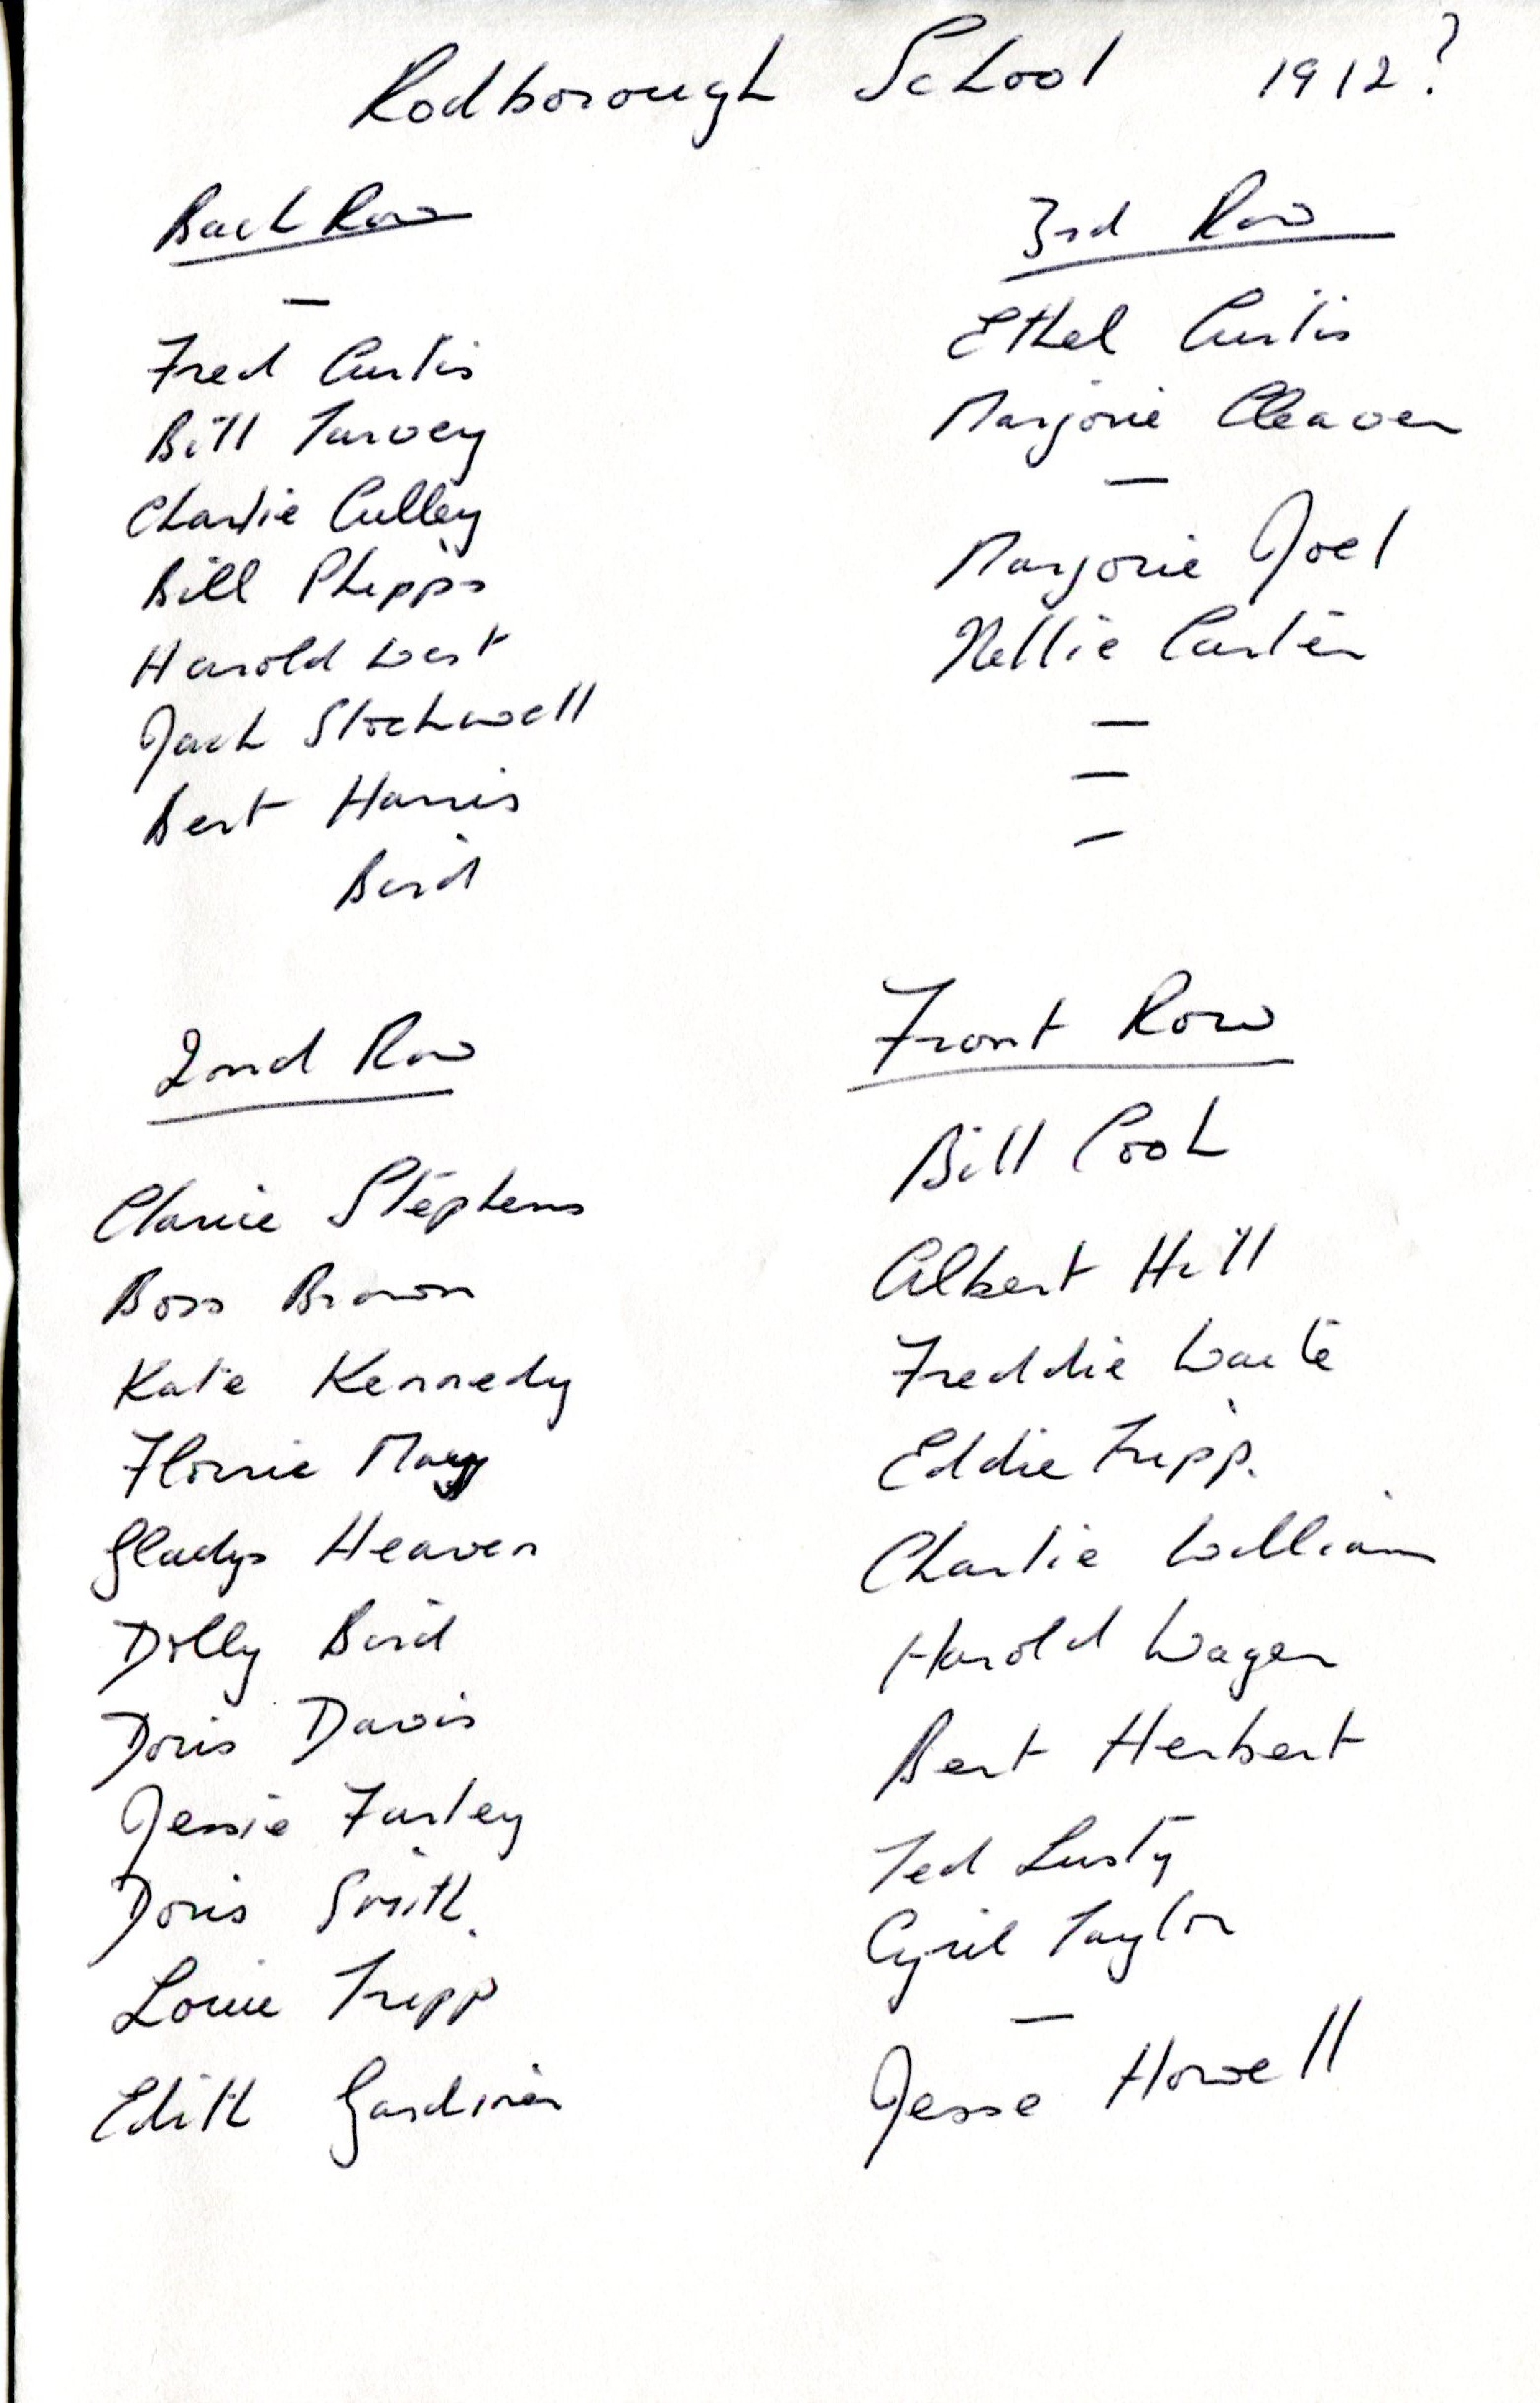 Rodborough School 1912?
Back Row
—
Fred Curtis
Bill Turvey
Charlie Culley
Bill Phipps
Harold West
Jack Stockwell
Bert Harris
Bird
2nd Row
Clarice Stephens
Boss Brown
Katie Kennedy
Florrie May
Gladys Heaven
Dolly Bird
Doris Davis
Jessie Farley
Doris Smith.
Louie Tripp
Edith Gardiner
3rd Row
Ethel Curtis
Marjorie Cleaver
—
Marjorie Joel
Nellie Carter
—
—
—
Front Row
Bill Cook
Albert Hill
Freddie Waite
Eddie Tripp.
Charlie William
Harold Wager
Bert Herbert
Ted Lusty
Cyril Taylor
—
Jesse Howell